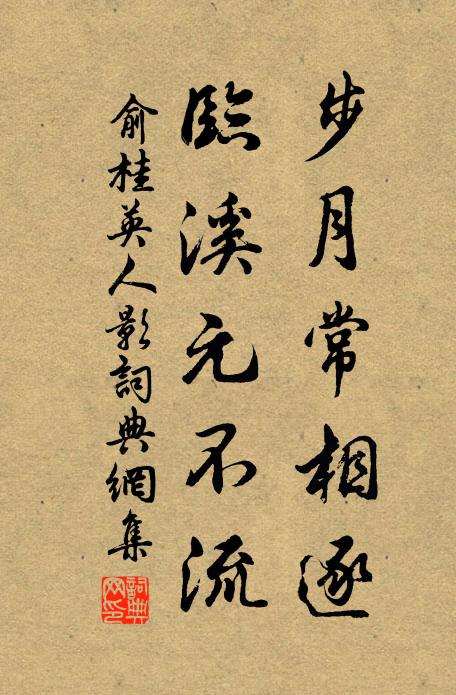 步月常相逐
臨溪元不流
俞桂英人影詞典網集
詞典網印